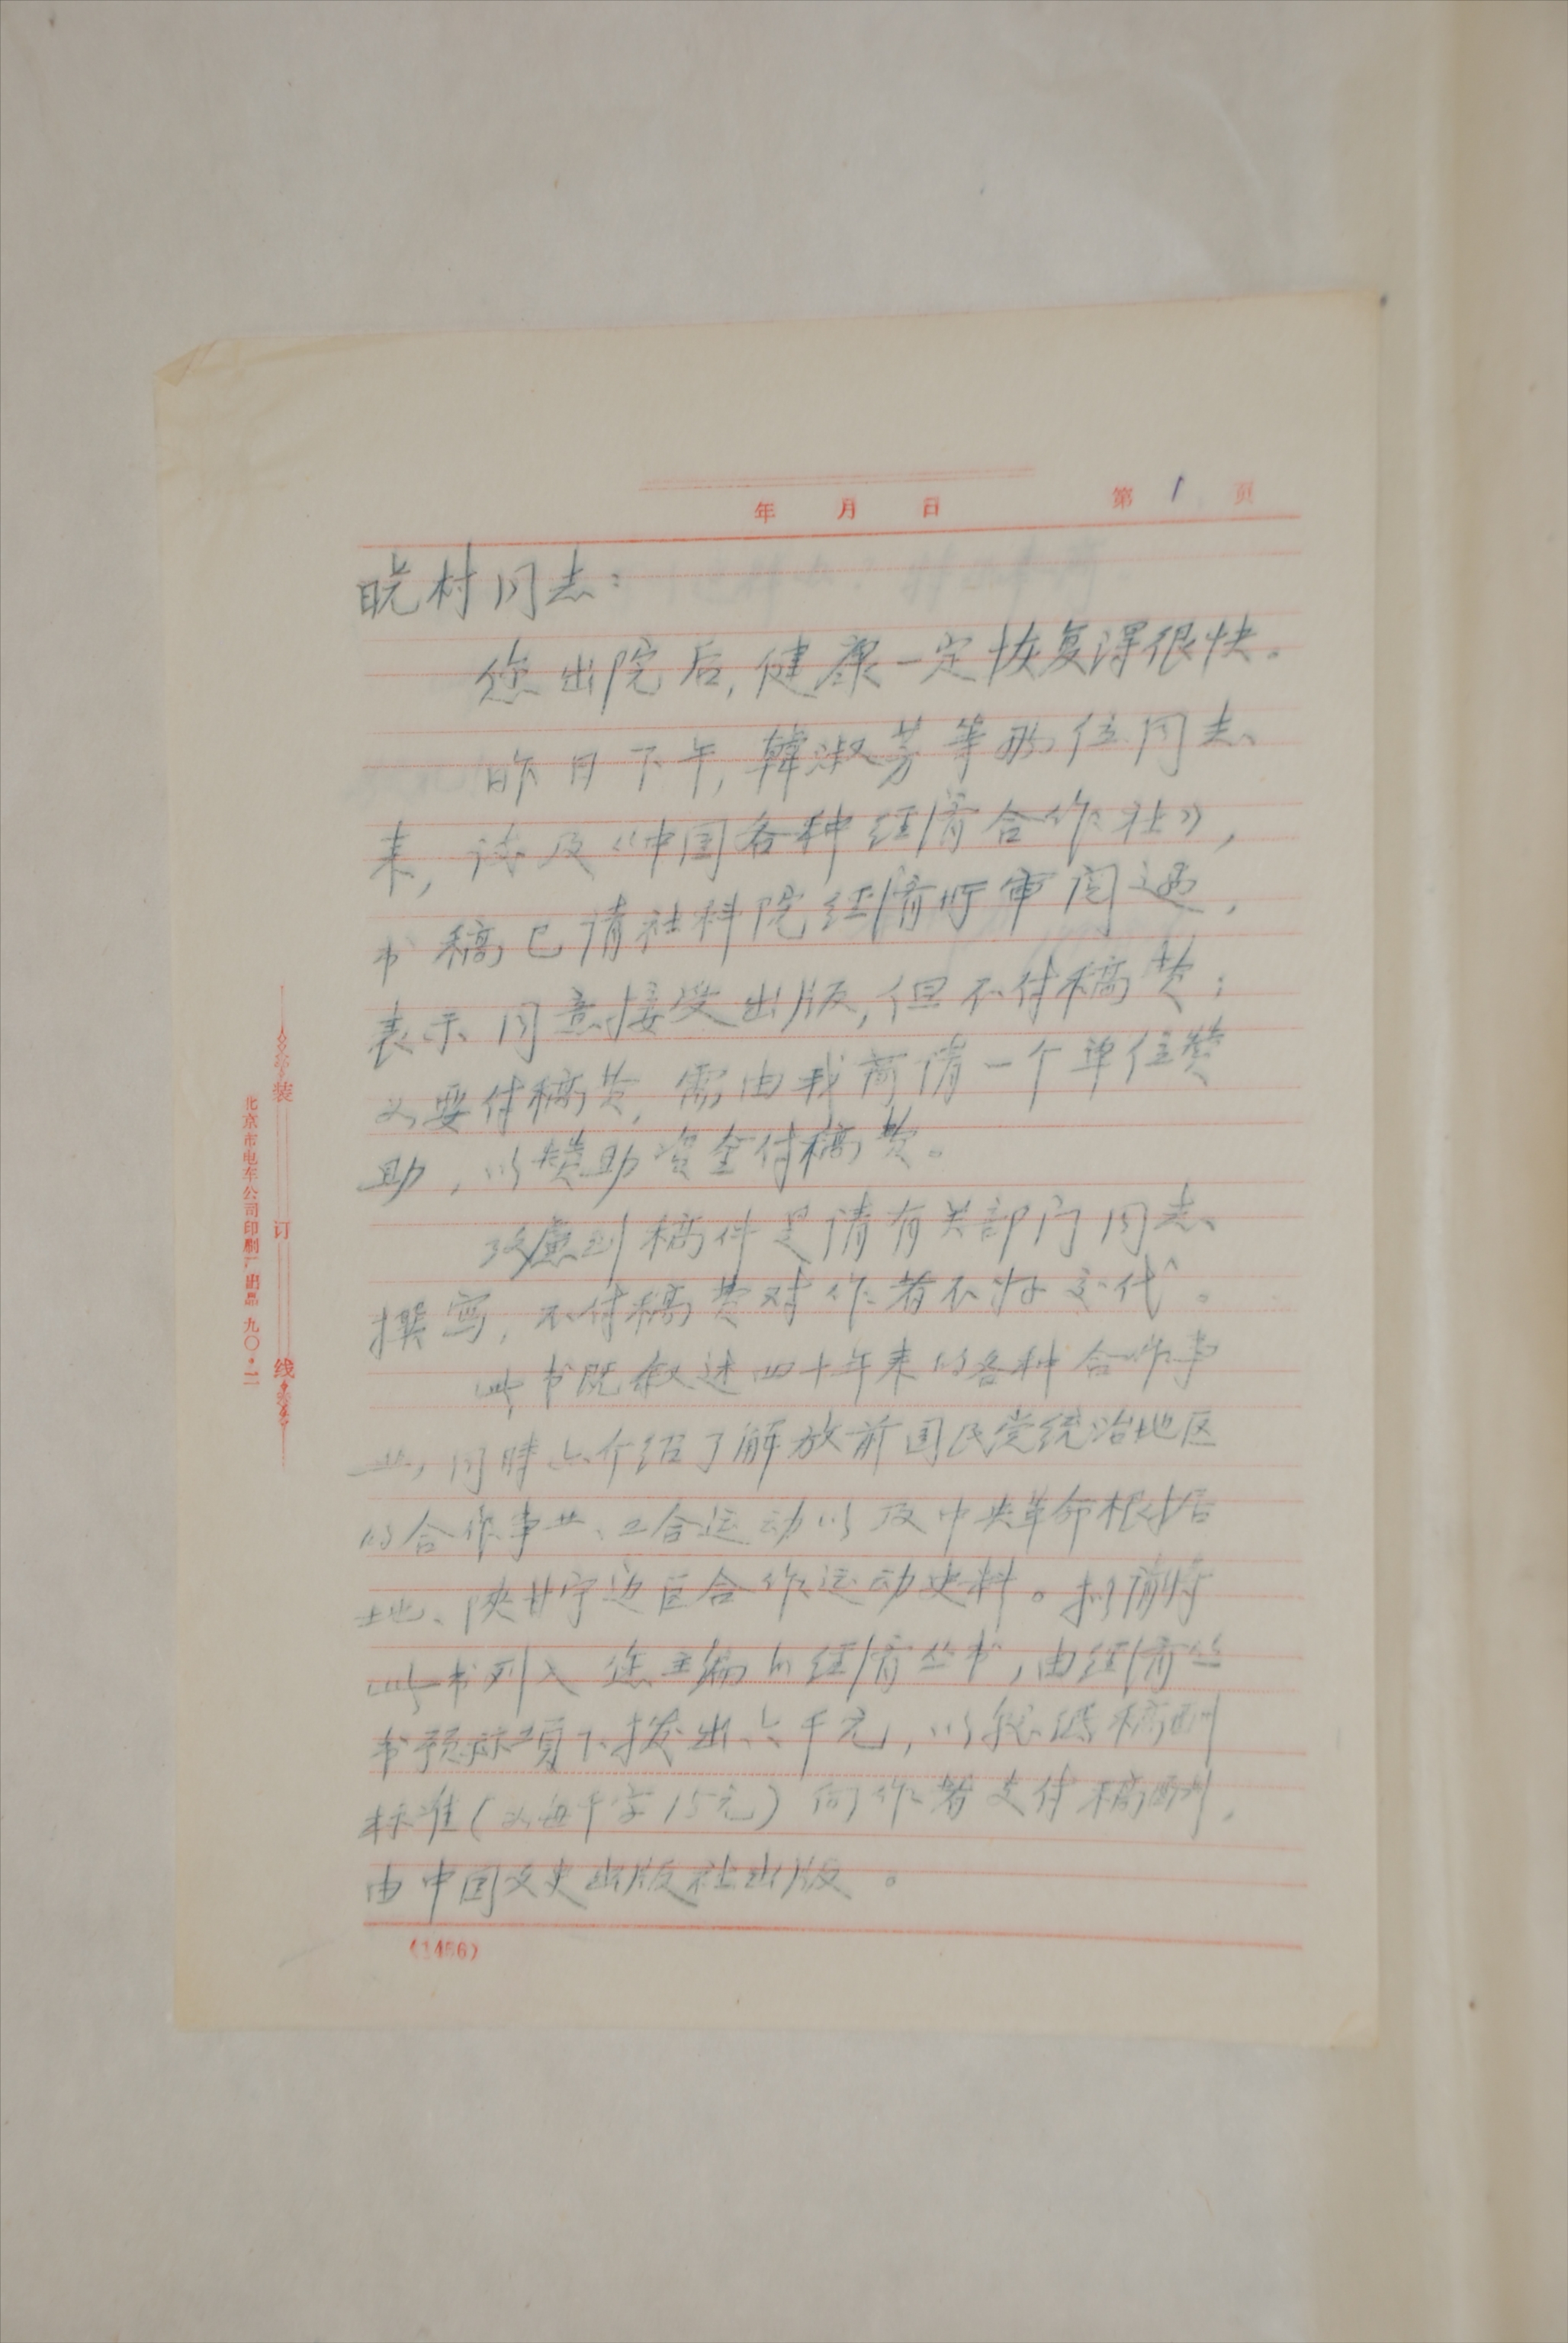 年 月 日 第 1 页
晓村同志：
您出院后，健康一定恢复得很快。
昨日下午，韓淑芳等两位同志
来，谈及《中国各种经济合作社》，
书稿已请社科院经济所审阅过，
表示同意接受出版，但不付稿费；
如要付稿费，需由我商请一个单位赞
助，以赞助资金付稿费。
考慮到稿件是请有关部门同志
撰寫，不付稿费对作者不好交代。
此书既叙述四十年来的各种合作事
业，同時亦介绍了解放前国民党统治地区
的合作事业、工合运动以及中央革命根据
地、陕甘宁边区合作运动史料。拟请将
此书列入您主编的经济丛书，由经济丛
书预标项下拨出六千元，以低標稿酬
标准（如每千字15元）向作者支付稿酬，
由中国文史出版社出版。
(1456)
装 订 线
北京市电车公司印刷厂出品 九〇·十二